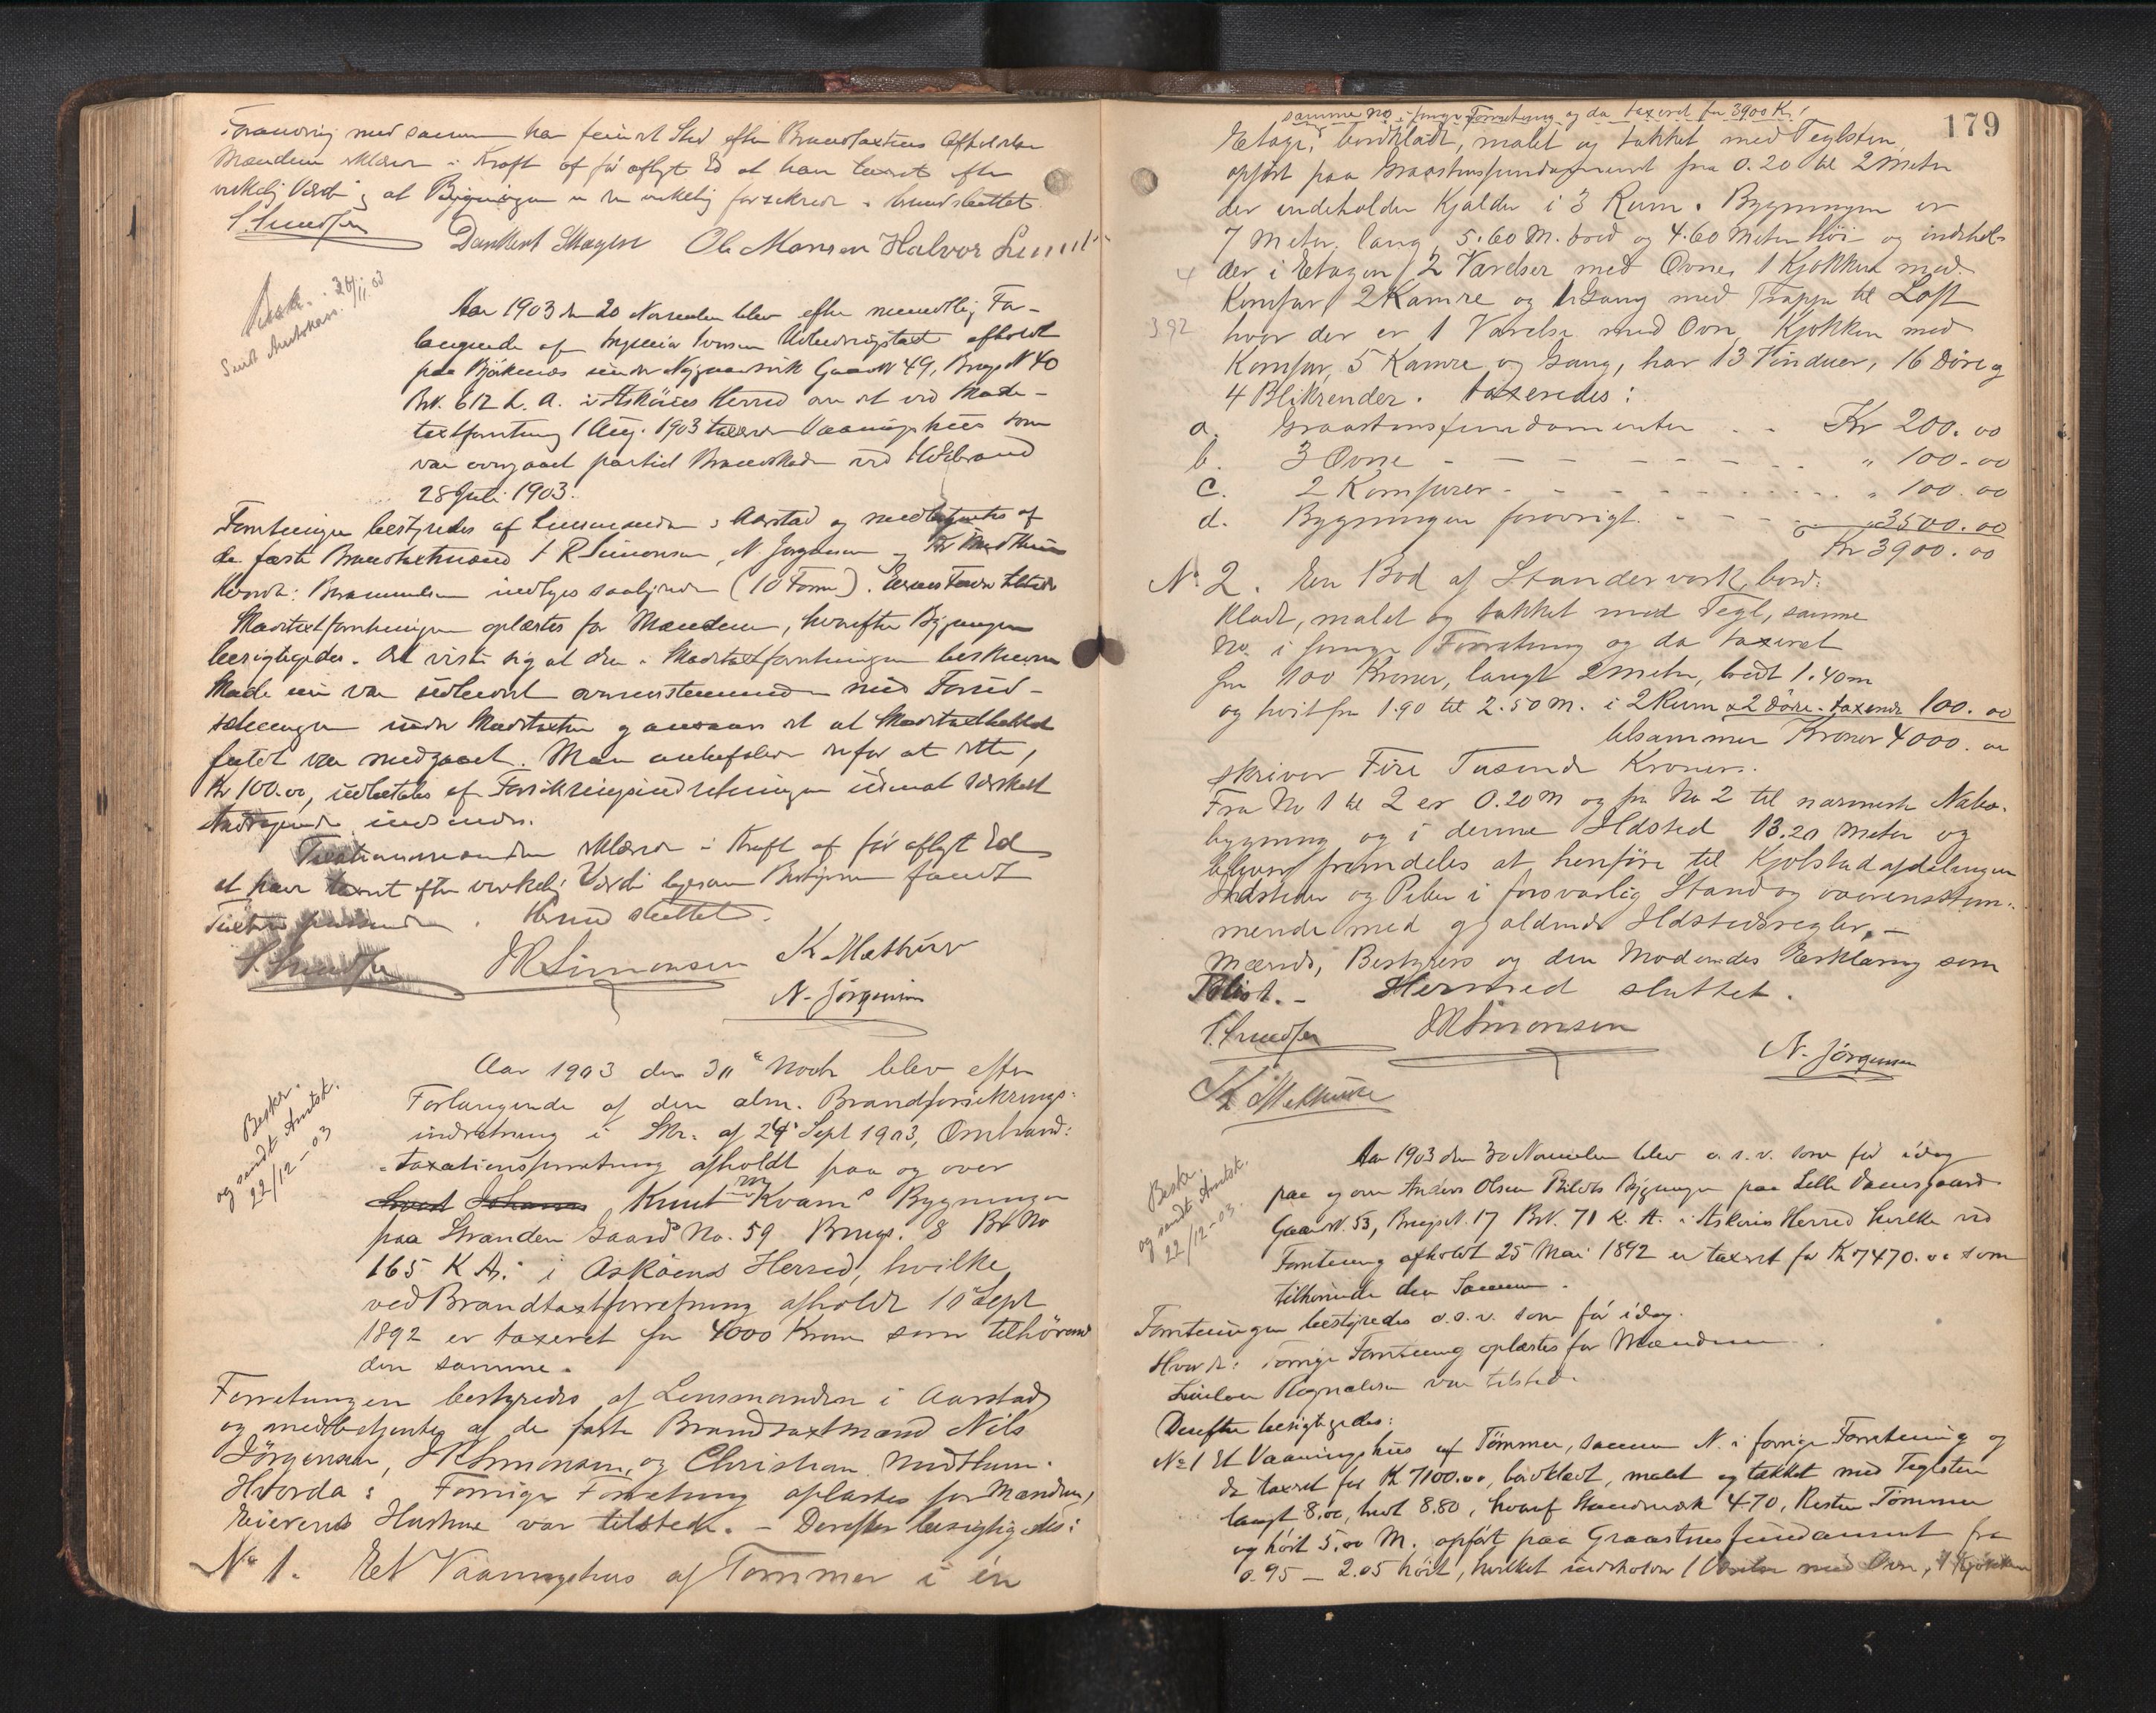 Forandring med samme har ei fundet Sted efter Brandtaxtens Afholdelse
Mændene erklærer i Kraft af før aflagt Ed at have taxeret efter
virkelig Værdi og at Bygningen er
S. Knudsen Dankert Skagen Ole Monsen Halvor
26/11 03
Sendt Amtskass.
Aar 1903 den 20 November blev efter mundtlig For-
langende af Iversen afholdt
paa under Gaards N 49, Brugs N 40
BN. 612 L. A. i Askøens Herred over et ved Skade-
taxtforretning 1 Aug. 1903 taxeret Vaaningshus som
var overgaaet partiel Brandskade ved Ildebrand
28 Juli 1903.
Forretningen bestyredes af Lensmanden i Aarstad og medbetjentes af
de faste Brandtaxtmænd I R Simonsen, N. Jørgensen og Kr Midthun
Hvorda: (10 Form).
Skadetaxtforretningen oplæstes for Mændene, hvorefter Bygningen
besigtigedes. Det viste sig at den i Skadetaxtforretningen beskrevne
Skade nu var udbedret overensstemmende med Forud-
sætningen under Skadetaxten og ansaaes det at Skadetaxtbeløbet
fuldt var medgaaet. Man anbefaler derfor at dette,
Kr 100.00, udbetales af Forsikringsindretningen
Andragende indsendes.
Taxtationsmændene erklærer i Kraft af før aflagt Ed
at have taxeret efter virkelig Værdi ligesom Bestyreren fandt
Taxten passende. Hermed sluttet.
S. Knudsen I R Simonsen K Midthun
N. Jørgensen
Beskr.
og sendt Amtsk.
22/12-03
Aar 1903 den 30te Novbr blev efter
Forlangende af den alm. Brandforsikrings-
indretning i Skr. af 24 Sept 1903, Ombrand-
taxationsforretning afholdt paa og over
Knut Kvams Bygninger
paa Stranden Gaards No. 59 Brugs. 8 Br No
165 K A. i Askøens Herred, hvilke
ved Brandtaxtforretning afholdt 10 Sept
1892 er taxeret for 4000 Kroner som tilhørende
den samme.
Forretningen bestyredes af Lensmanden i Aarstad
og medbetjentes af de faste Brandtaxtmænd Nils
Jørgensen, I R Simonsen, og Christian Midthun.
Hvorda: Forrige Forretning oplæstes for Mændene,
Eierens Hustru var tilstede. - Derefter besigtigedes:
No 1. Et Vaaningshus af Tømmer i én
179
samme No. i forrige Forretning og da taxeret for 3900 Kr.
Etage, bordklædt, malet og tækket med Teglsten,
opført paa Graastensfundament fra 0.20 til 2 Meter
der indeholder Kjælder i 3 Rum. Bygningen er
7 Meter lang, 5.60 M. bred og 4.60 Meter høi og indehol-
der i Etagen 2 Værelser med Ovne, 1 Kjøkken med
Komfur, 2 Kamre og 1 Gang med Trappe til Loft
hvor der er 1 Værelse med Ovn, Kjøkken med
Komfur, 5 Kamre og Gang, har 13 Vinduer, 16 Døre og
4 Blikrender. taxeredes:
a. Graastensfundamenter - - Kr 200.00
b. 3 Ovne - - - - - - " 100.00
c. 2 Komfurer - - - - - - " 100.00
d. Bygningen forøvrigt - - - - " 3500.00
Kr 3900.00
No 2. En Bod af Standerværk, bord-
klædt, malet og tækket med Tegl, samme
No. i forrige Forretning og da taxeret
for 100 Kroner, langt 2 Meter, bredt 1.40 m
og høit fra 1.90 til 2.50 M. i 2 Rum x 2 Døre. taxeredes 100.00
tilsammen Kroner 4000.00
skriver Fire Tusinde Kroner.
Fra No 1 til 2 er 0.20 M og fra No 2 til nærmeste Nabo-
bygning og i denne Ildsted 13.20 Meter og
bliver fremdeles at henføre til Kjølstadafdelingen
Ildsteder og Piber i forsvarlig Stand og overensstem-
mende med gjældende Ildstedsregler. -
Mænds, Bestyrers og den Mødendes Erklæring som
sidst. - Hermed sluttet.
S. Knudsen I R Simonsen N. Jørgensen
K Midthun
Beskr.
og sendt Amtsk.
22/12-03.
Aar 1903 den 30 November blev o.s.v. som før idag
paa og over Anders Olsen Bygninger paa Lille Damsgaard
Gaards N. 53, Brugs N. 17 BN. 71 K. A. i Askøens Herred hvilke ved
Forretning afholdt 25 Mai 1892 er taxeret for Kr 7470.00 som
tilhørende den Samme.
Forretningen bestyredes o.s.v. som før idag.
Hvorda: Forrige Forretning oplæstes for Mændene
var tilstede.
Derefter besigtigedes:
No 1 Et Vaaningshus af Tømmer, samme N. i forrige Forretning og
da taxeret for Kr 7100.00, bordklædt, malet og tækket med Teglsten
langt 8,00, bredt 8.80, hvoraf Standerværk 4.70, Resten Tømmer
og høit 5,00 M. opført paa Graastensfundament fra
0.95 - 2.05 høit, hvilket indeholder 1 Værelse med Ovn, 1 Kjøkken